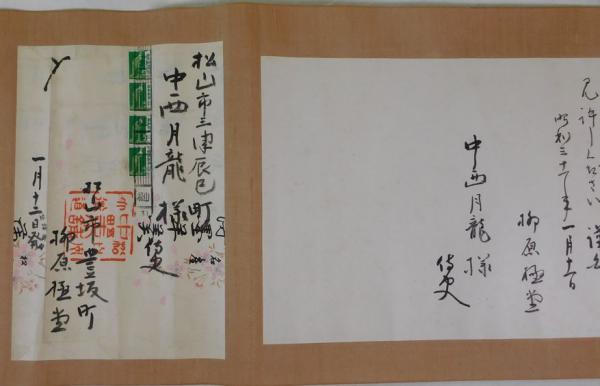 見許しください 謹白
昭和三十一年一月十二日
柳原極堂
中西月龍様
侍史
松山市三津辰巳町
中西月龍様
侍史
松山市豊坂町
柳原極堂
一月十二日